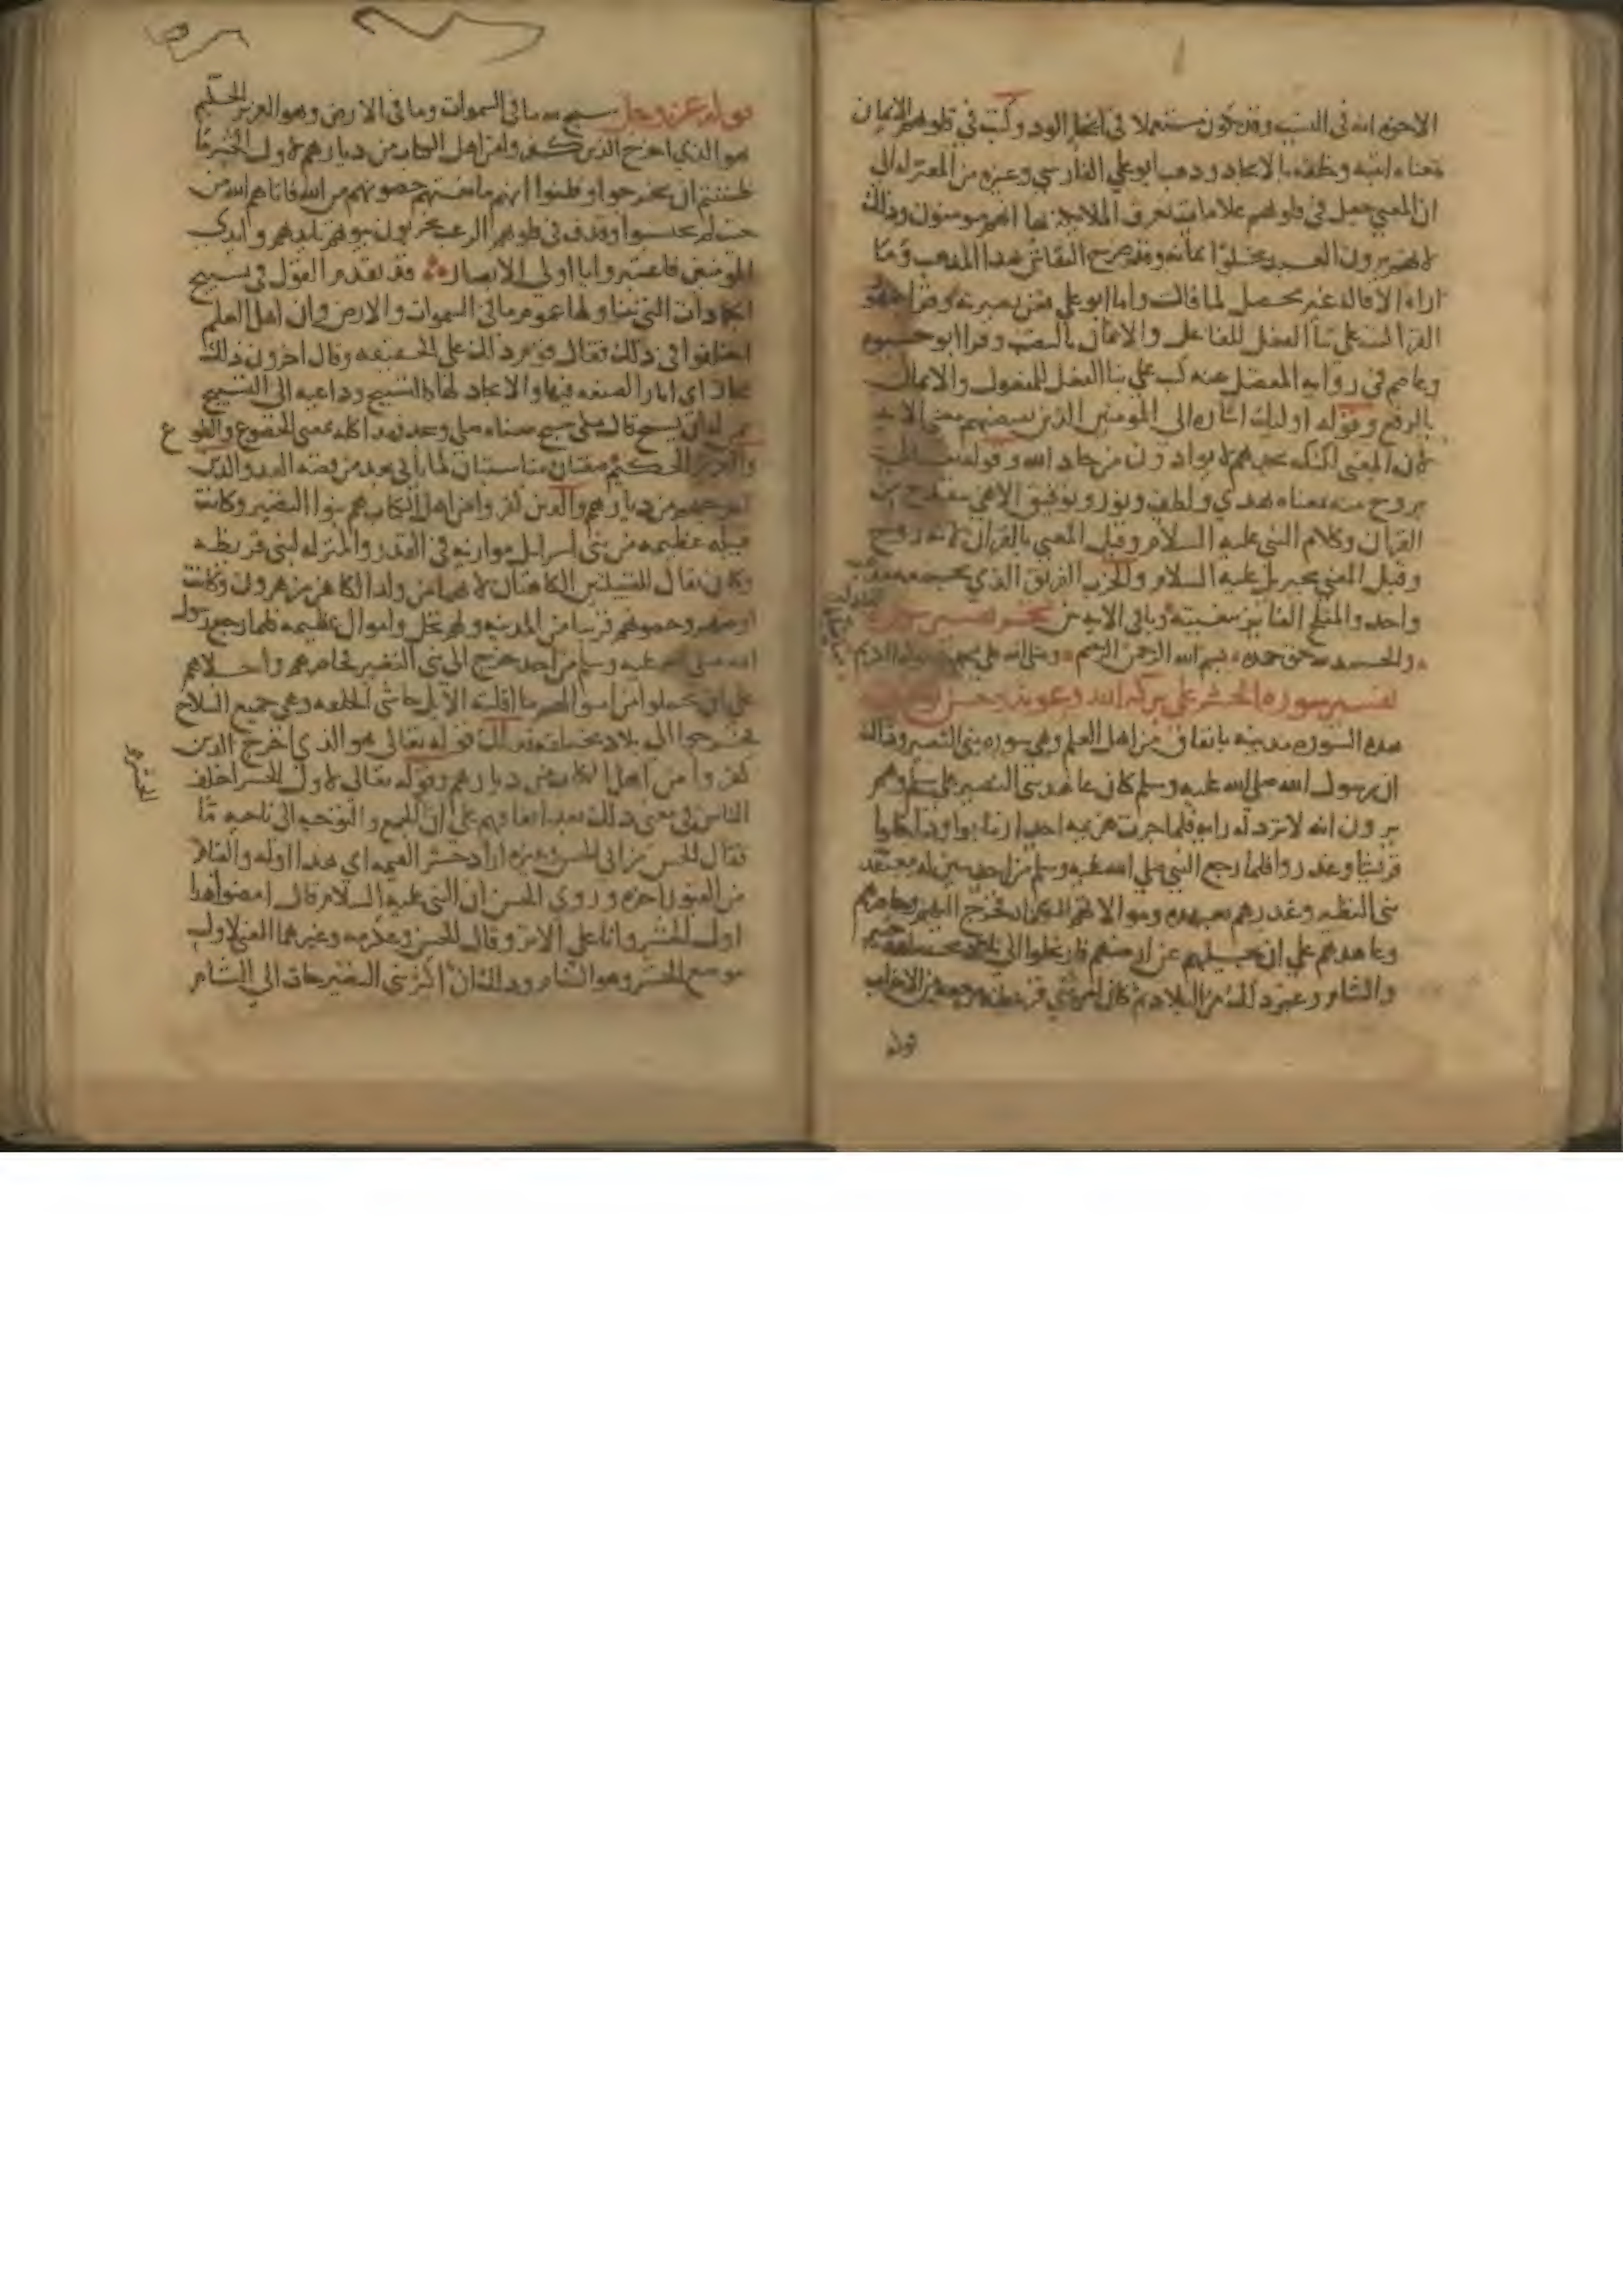 الاخوة انه في النسب وقد يكون مستعملا في اخاء الود وكتب في قلوبهم الايمان
معناه اثبته وخلقه بالايجاد وذهب ابو علي الفارسي وغيره من المعتزلة الى
ان المعنى جعل في قلوبهم علامات تعرف الملائكة بها انهم مومنون وذلك
لانهم يرون العبد يخلق ايمانه وقد صرح النقاش بهذا المذهب وما
اراه الا قاله غير محصل لما قال واما ابو علي فعن بصر به وقرا جمهور
القرا كتب على بنا الفعل للفاعل والايمان بالنصب وقرا ابو حيوه
وعاصم في رواية المفضل عنه كتب على بنا الفعل للمفعول والايمان
بالرفع وقوله اوليك اشاره الى المومنين الذين يقتضيهم معنى الايه
لان المعنى لكنك تجدهم لا يوادون من حاد الله وقوله تعالى
بروح منه معناه بهدي ولطف ونور وتوفيق الاهي ينقدح من
القران وكلام النبي عليه السلام وقيل المعنى بالقران لانه روح
وقيل المعنى بجبريل عليه السلام والحزب الفريق الذي يجمعه مذهب
واحد والمفلح الفايز ببغيته وباقي الايه بين نجز تفسير سورة
والحمد لله حق حمده بسم الله الرحمن الرحيم وصلى الله على
تفسير سورة الحشر على بركة الله وعونه وحسن
هذه السورة مدنيه باتفاق من اهل العلم وهي سورة بني النضير وذلك
ان رسول الله صلى الله عليه وسلم كان عاهد بني النضير على سلم وهم
يرون انه لا ترد له رايه فلما جرت هزيمة احد ارتابوا وداخلوا
قريشا وغدروا فلما رجع النبي صلى الله عليه وسلم من احد تبين له معتقد
بني النضير وغدرهم بعهده وموالاتهم للكفار فخرج اليهم وحاصرهم
وعاهدهم على ان يجليهم عن ارضهم فارتحلوا الى بلاد مختلفه خيبر
والشام وغير ذلك من البلاد ثم كان امر بني قريظه مرجعه من الاحزاب
قوله
قوله عز وجل سبح لله ما في السموات وما في الارض وهو العزيز الحكيم
هو الذي اخرج الذين كفروا من اهل الكتاب من ديارهم لاول الحشر ما
ظننتم ان يخرجوا وظنوا انهم مانعتهم حصونهم من الله فاتاهم الله من
حيث لم يحتسبوا وقذف في قلوبهم الرعب يخربون بيوتهم بايديهم وايدي
المومنين فاعتبروا يا اولي الابصار قد تقدم القول في تسبيح
الجمادات التي يتناولها عموم ما في السموات والارض وان اهل العلم
اختلفوا في ذلك فقال قوم ذلك على الحقيقه وقال اخرون ذلك
مجاز اي اثار الصنعه فيها والايجاد لها كالتسبيح وداعيه الى التسبيح
ممن له ان يسبح قال مكي سبح معناه صلى وسجد فهذا كله بمعنى الخضوع والطوع
والعزيز الحكيم صفتان مناسبتان لما ياتي بعد من قصة العدو الذين
اخرجهم من ديارهم والذين كفروا من اهل الكتاب هم بنوا النضير وكانت
قبيله عظيمه من بني اسرايل موازيه في القدر والمنزله لبني قريظه
وكان يقال للقبيلتين الكاهنان لانهما من ولد الكاهن بن هرون وكانت
ارضهم وحصونهم قريبا من المدينه ولهم نخل واموال عظيمه فلما رجع رسول
الله صلى الله عليه وسلم من احد خرج الى بني النضير فحاصرهم واجلاهم
على ان يحملوا من اموالهم ما اقلته الابل حاشى الحلقه وهي جميع السلاح
فخرجوا الى بلاد مختلفه فذلك قوله تعالى هو الذي اخرج الذين
كفروا من اهل الكتاب من ديارهم وقوله تعالى لاول الحشر اختلف
الناس في معنى ذلك بعد اتفاقهم على ان الحشر الجمع والتوجيه الى ناحيه ما
فقال الحسن بن ابي الحسن وغيره اراد حشر القيمه اي هذا اوله والقيام
من القبور اخره وروى الحسن ان النبي عليه السلام قال امضوا هذا
اول الحشر وانا على الاثر وقال الحسن وعكرمه وغيرهما المعنى لاول
موضع الحشر وهو الشام وذلك ان اكثر بني النضير جات الى الشام